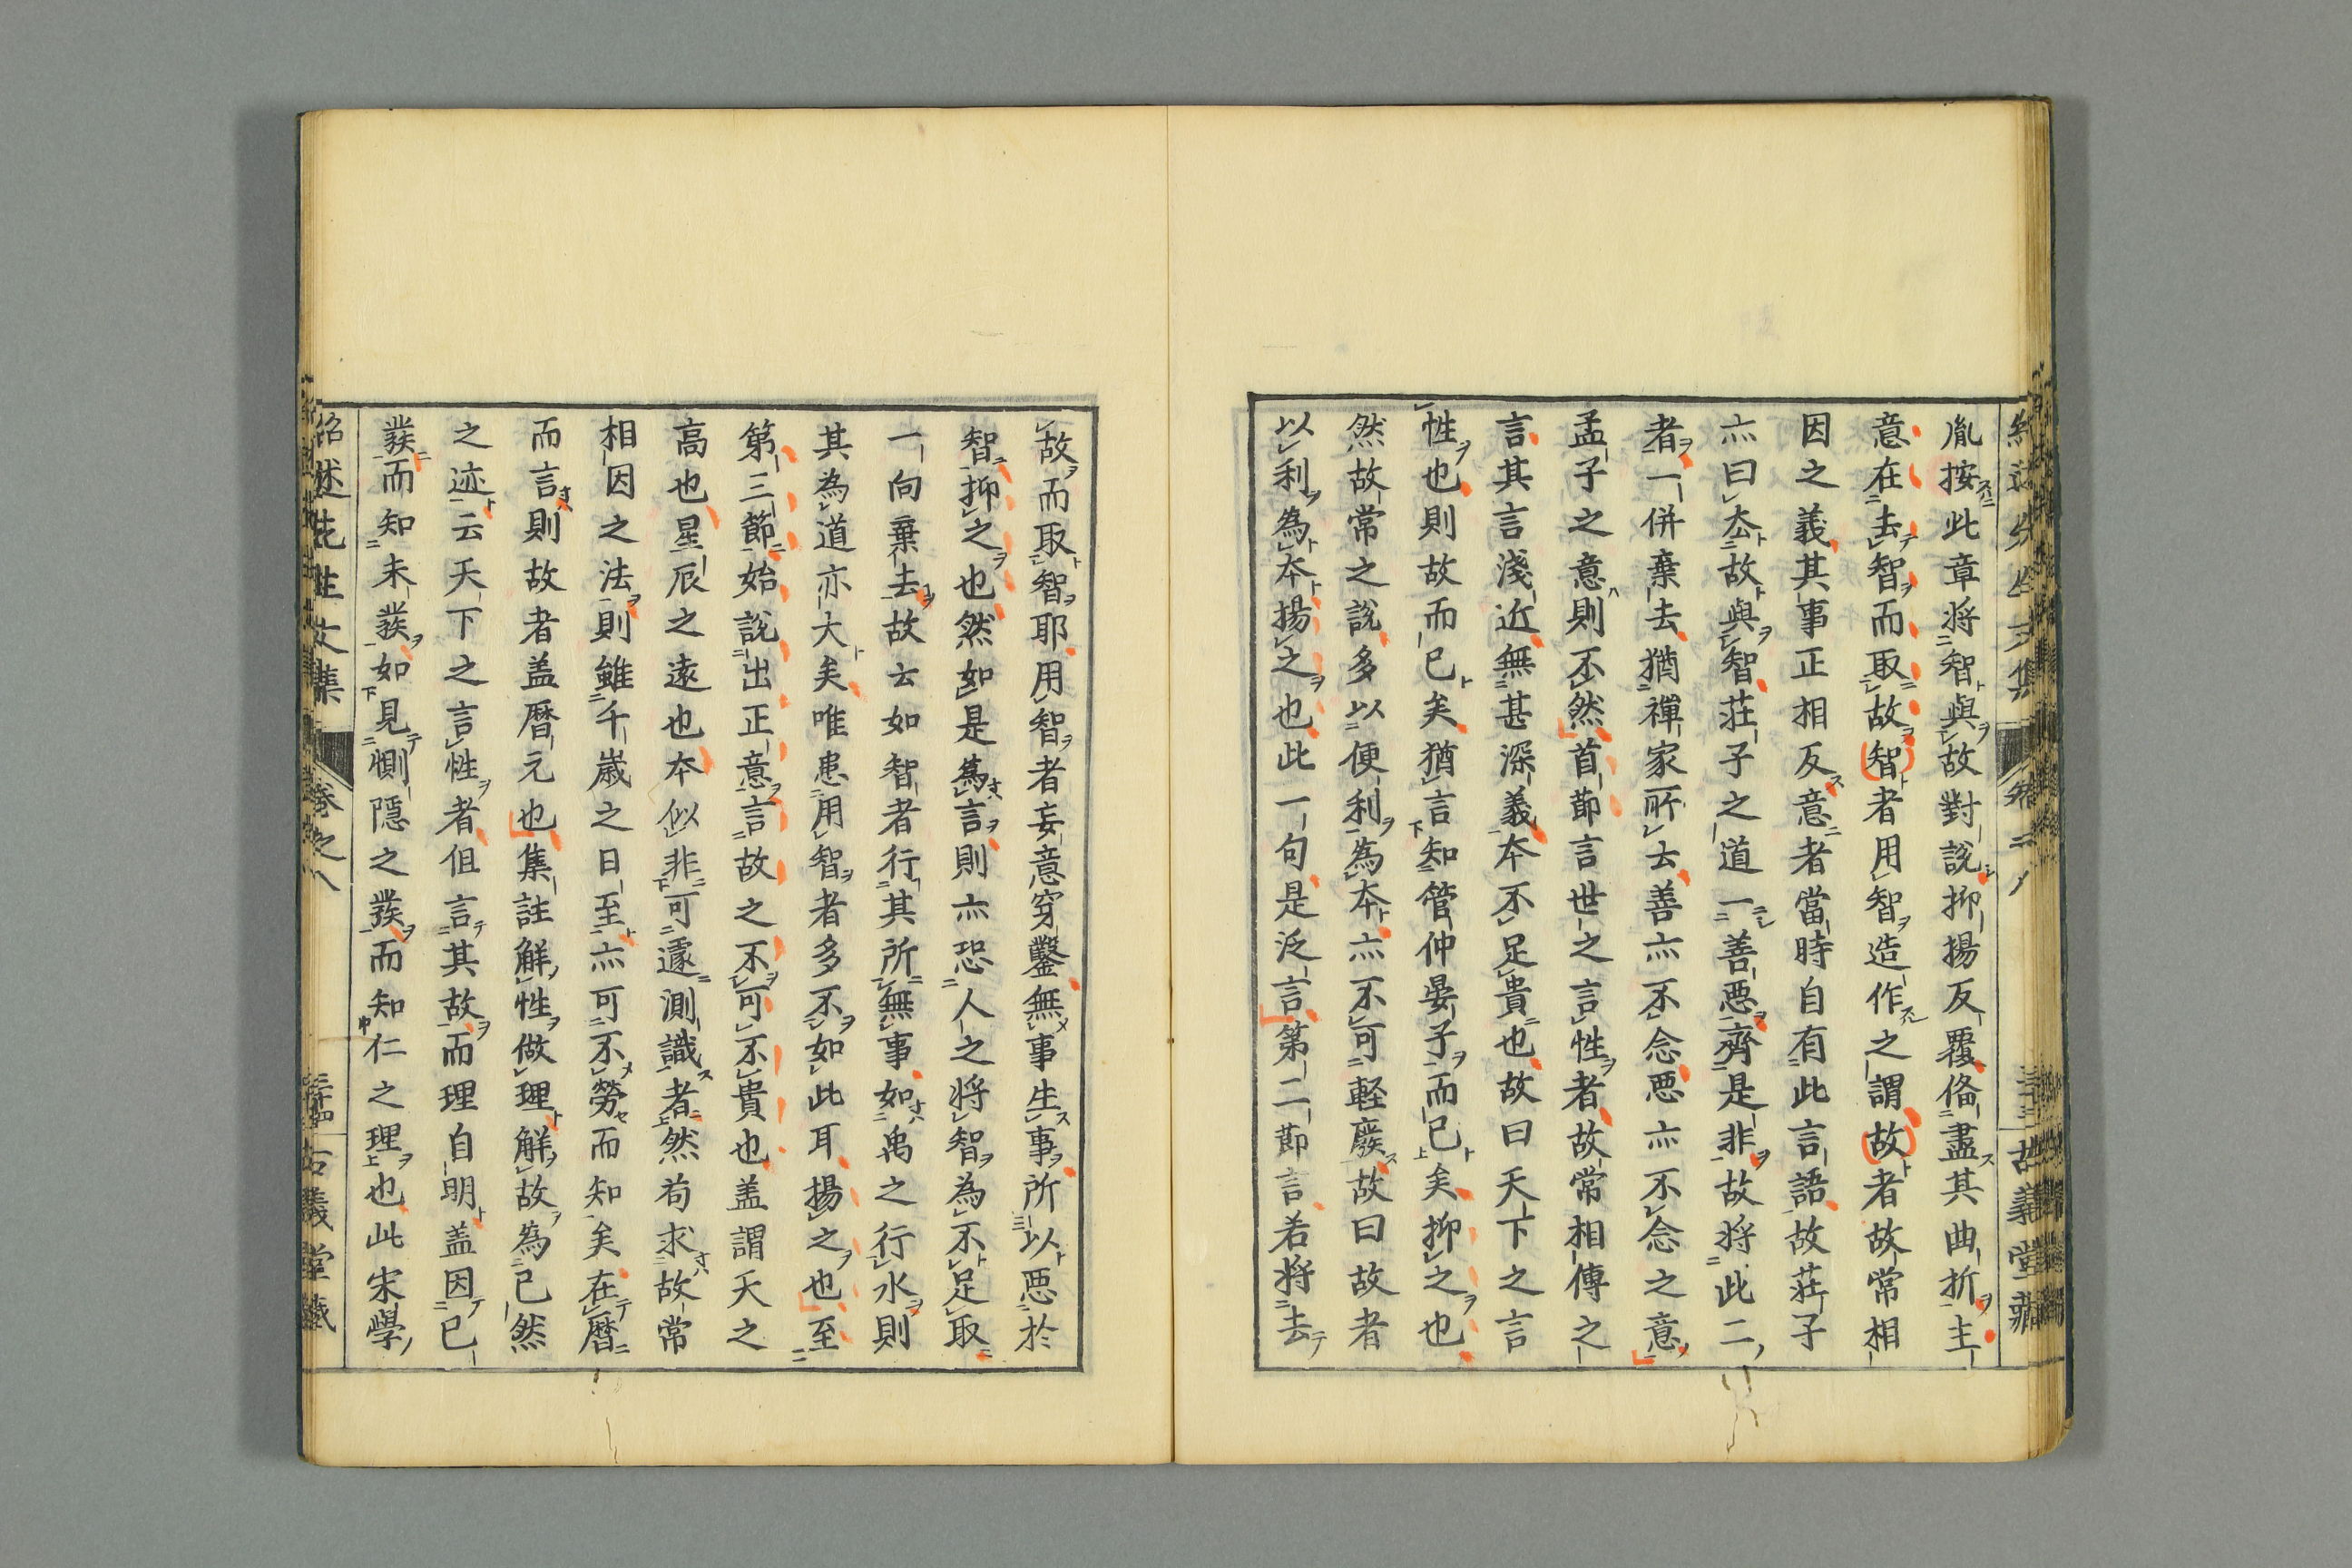 胤按此章将智與故對說抑揚反覆俻盡其曲折主
意在去智而取故智者用智造作之謂故者故常相
因之義其事正相反意者當時自有此言語故莊子
亦曰去故與智莊子之道一善惡齊是非故将此二
者一併棄去猶禪家所云善亦不念惡亦不念之意
孟子之意則不然首節言世之言性者故常相傳之
言其言淺近無甚深義本不足貴也故曰天下之言
性也則故而已矣猶言知管仲晏子而已矣抑之也
然故常之說多以便利為本亦不可輕廢故曰故者
以利為本揚之也此一句是泛言第二節言若将去
故而取智耶用智者妄意穿鑿無事生事所以惡於
智抑之也然如是為言則亦恐人之将智為不足取
一向棄去故云如智者行其所無事如禹之行水則
其為道亦大矣唯患用智者多不如此耳揚之也至
第三節始說出正意言故之不可不貴也盖謂天之
高也星辰之遠也本似非可遽測識者然苟求故常
相因之法則雖千歲之日至亦可不勞而知矣在曆
而言則故者盖曆元也集註解性做理解故為已然
之迹云天下之言性者但言其故而理自明盖因已
發而知未發如見惻隱之發而知仁之理也此宋學
紹述先生文集 卷之八 三十四 古義堂藏